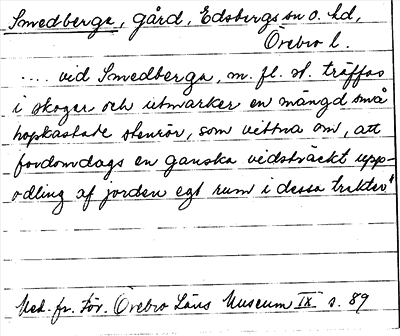 Smedberga, gård, Edsbergs sn o. hd,
Örebro l.
.... vid Smedberga, m. fl. st. träffas
i skogar och utmarker en mängd små
hopkastade stenrör, som vittna om, att
fordomdags en ganska vidsträckt upp-
odling af jorden egt rum i dessa trakter"
Med. fr. För. Örebro Läns Museum IX s. 89